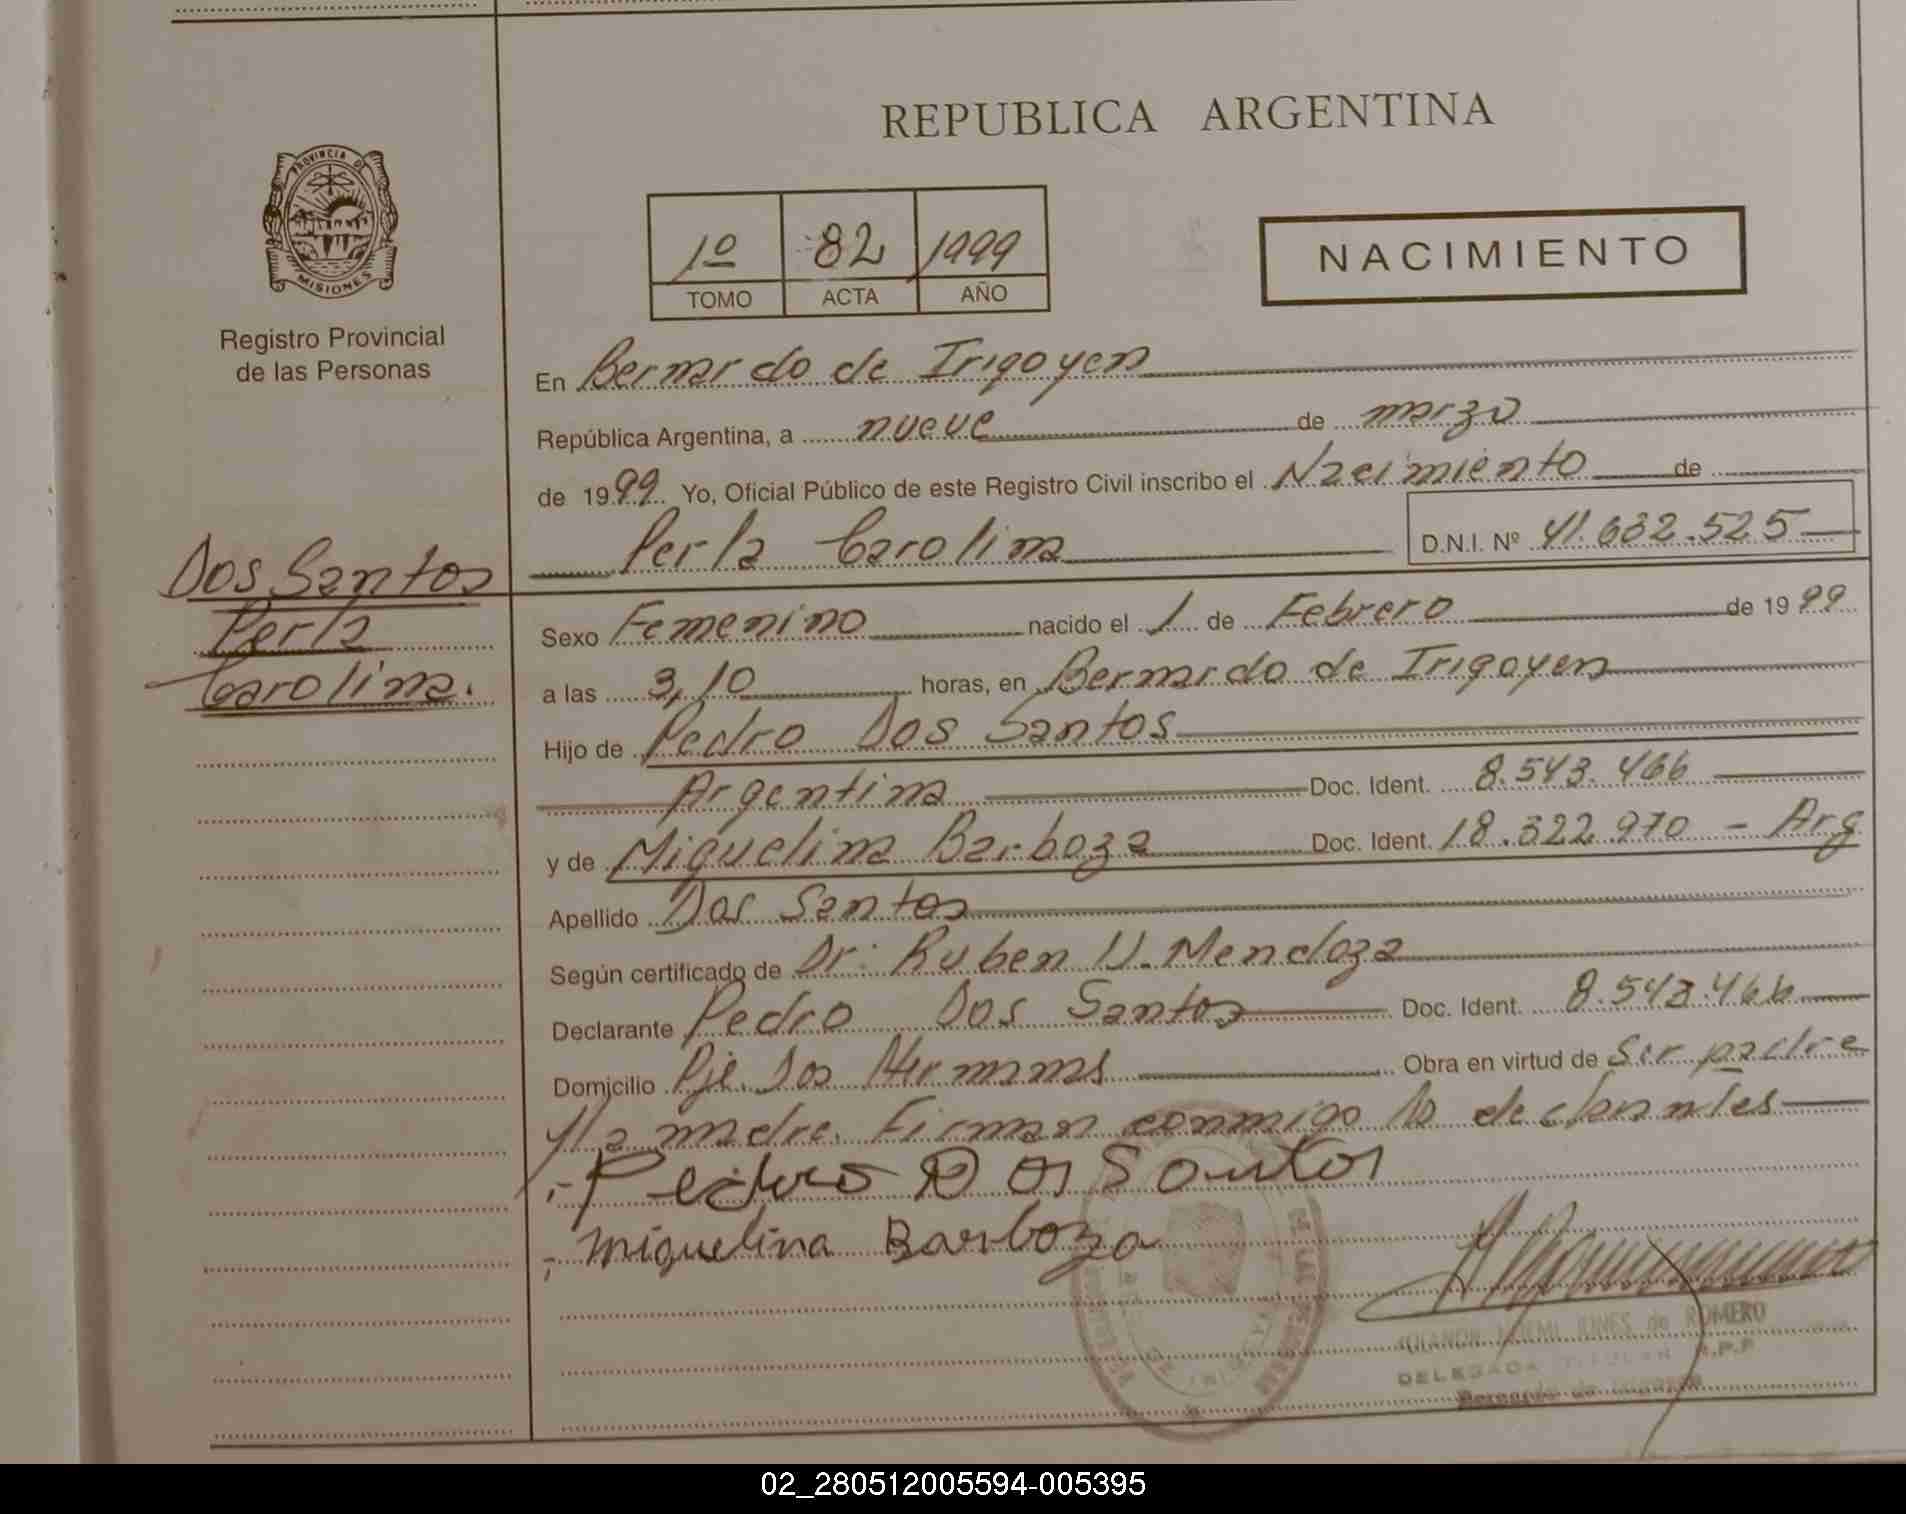 REPUBLICA ARGENTINA
PROVINCIA DE
MISIONES
Registro Provincial
de las Personas
1º 82 1999
TOMO ACTA AÑO
NACIMIENTO
En Bernardo de Irigoyen
República Argentina, a nueve de marzo
de 1999 Yo, Oficial Público de este Registro Civil inscribo el Nacimiento de
Perla Carolina D.N.I. Nº 41.632.525
Dos Santos
Perla
Carolina.
Sexo Femenino nacido el 1 de Febrero de 1999
a las 3,10 horas, en Bernardo de Irigoyen
Hijo de Pedro Dos Santos
Argentina Doc. Ident. 8.543.466
y de Miguelina Barboza Doc. Ident. 18.322.970 - Arg
Apellido Dos Santos
Según certificado de Dr: Ruben U. Mendoza
Declarante Pedro Dos Santos Doc. Ident. 8.543.466
Domicilio Pje. Dos Hermanas Obra en virtud de Ser padre
y la madre. Firman conmigo lo declarantes
Pedro Dos Santos
Miguelina Barboza
NOEMI de ROMERO
DELEGADA TITULAR R.P.P
Bernardo de Irigoyen
02_280512005594-005395